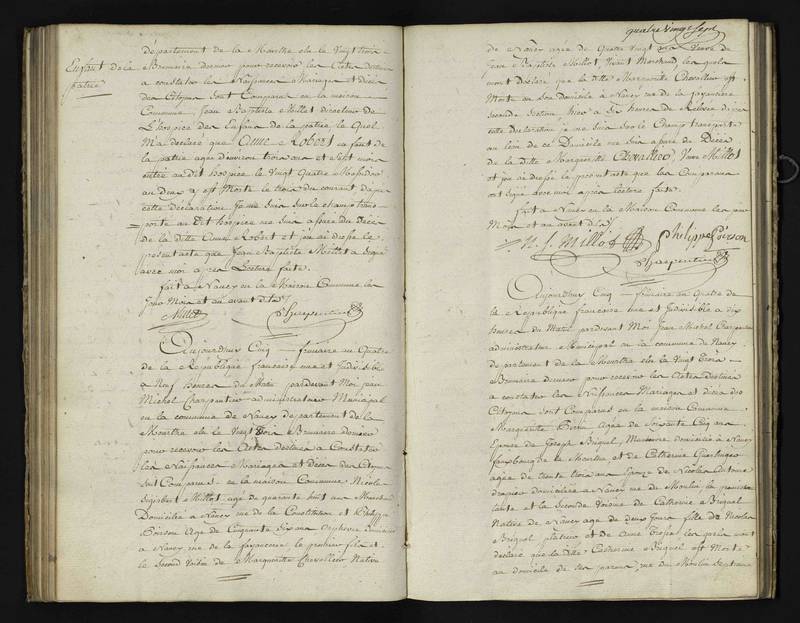 département de la Meurthe élu le Vingt trois
Enfant de la
patrie
Brumaire dernier pour recevoir les Actes destinés
a constater les Naissances Mariages et Décès
des Citoyens sont Comparus en la maison
Commune Jean Baptiste Millot directeur de
L'hospice des Enfans de la patrie le quel
M'a déclaré que Anne Robert enfant de
la patrie agée d'environ trois ans et Sept mois
entrée au dit hospice le Vingt Quatre Messidor
au deux est Morte le trois du courant d'après
cette déclaration Je me suis sur le champ trans
porté au dit hospice me suis assuré du Décès
de la ditte Anne Robert et j'ai dressé le
présent acte que Jean Baptiste Millot a signé
avec moi apres Lecture faite.
fait a Nancy en la Maison Commune les
Jour Mois et an avant dits
Millot Charpentier
Aujourdhuy Cinq frimaire an Quatre
de la République francaise une et Indivisible
a Neuf heures du Matin pardevant Moi Jean
Michel Charpentier administrateur Municipal
en la commune de Nancy departement de la
Meurthe élu le Vingt Trois Brumaire dernier
pour recevoir les Actes destinés a Constater
les Naissances Mariages et Décès des Citoyens
sont Comparus en la maison Commune Nicolas
Sigisbert Millot agé de quarante huit ans Marchand
Domicilié a Nancy rue de la Constitution et Philippe
Poirson Agé de Cinquante Six ans Orphevre domicilié
a Nancy rue de la fayencerie le premier fils et
le Second Voisin de Marguerite Chevallier Native
quatre Vingt Sept
de Nancy agée de Quatre Vingt ans Veuve de
Jean Baptiste Millot, Vivant Marchand les quels
mont déclaré que la ditte Marguerite Chevallier est
Morte en son Domicile a Nancy rue de la fayencerie
heures
cette déclaration je me suis sur le Champ transporté
au lieu de ce Domicile me suis assuré du Décès
de la ditte Marguerite Chevallier, Veuve Millot
et j'ai dressé le présent acte que les Comparus
ont signé avec moi après lecture faite.
fait a Nancy en la Maison Commune les jour
Mois et an avant dits
N. S. Millot Philippe Poirson
Charpentier
Aujourdhuy Cinq frimaire an Quatre de
la Republique francaise une et Indivisible a dix
heures du Matin pardevant Moi Jean Michel Charpentier
administrateur Municipal en la commune de Nancy
departement de la Meurthe élu le Vingt Trois
Brumaire dernier pour recevoir les Actes destinés
a constater les Naissances Mariages et décès des
Citoyens sont Comparus en la maison Commune
Marguerite agée de soixante Cinq ans
Epouse de Joseph Briquel, domicilié a Nancy
fauxbourg de la Meurthe et de Catherine
agée de trente trois ans Epouse de Nicolas Antoine
drapier domiciliée a Nancy rue du Moulin la premiere
tante et la Seconde Voisine de Catherine Briquel
Native de Nancy agée de deux Jours fille de Nicolas
Briquel platreur et de Anne les quels mont
déclaré que la ditte Catherine Briquel est Morte
au domicile de ses parens rue du Moulin